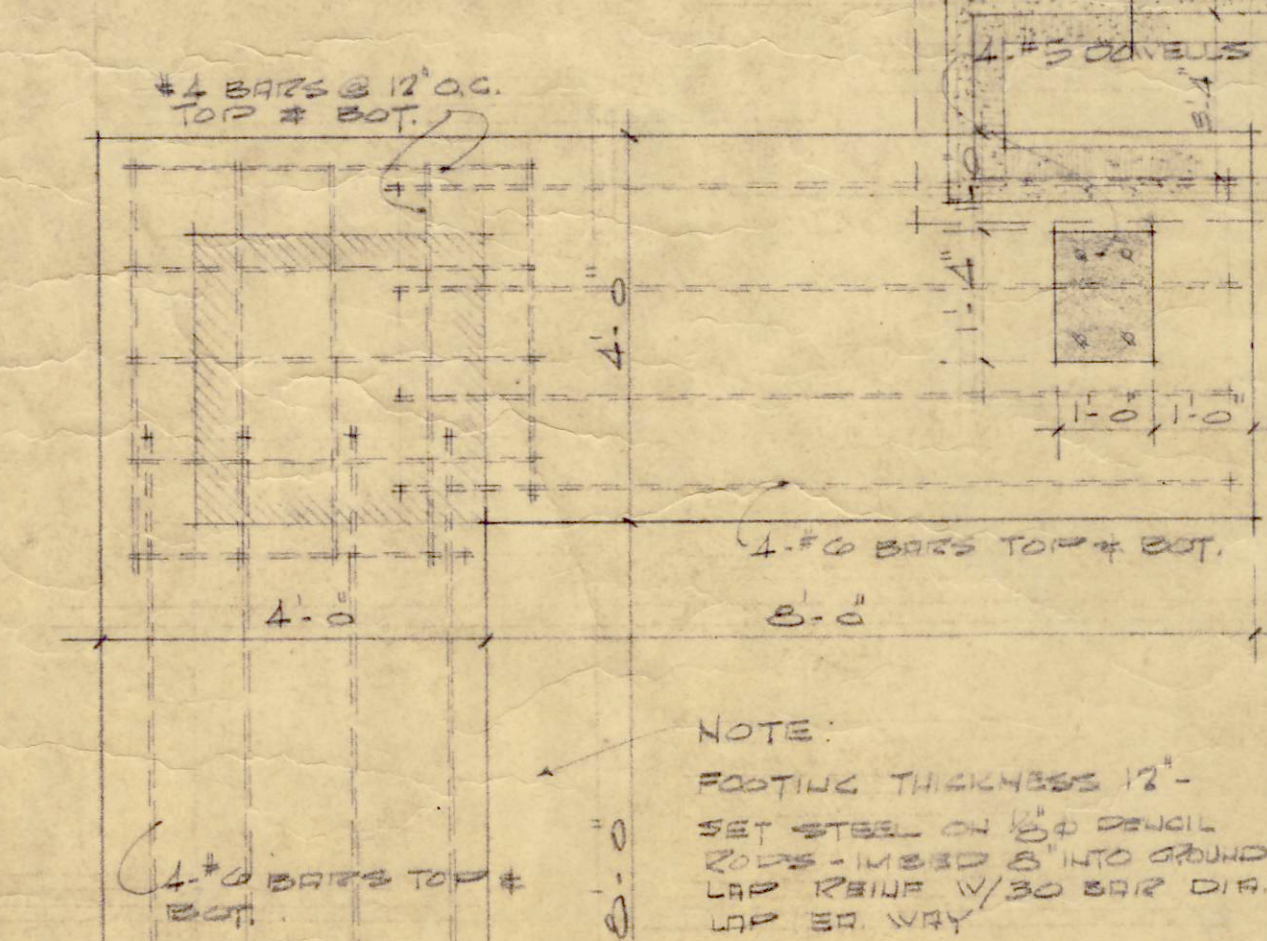 #4 BARS @ 12" O.C.
TOP & BOT.
4-#5 DOWELLS
3'-4"
1'-0"
1'-4"
4'-0"
1'-0" 1'-0"
4-#6 BARS TOP & BOT.
4'-0"
8'-0"
NOTE:
FOOTING THICKNESS 12"-
SET STEEL ON 1/2"Φ PENCIL
RODS - IMBED 8" INTO GROUND
LAP REINF W/30 BAR DIA.
LAP EA. WAY
4-#6 BARS TOP &
BOT.
8'-0"